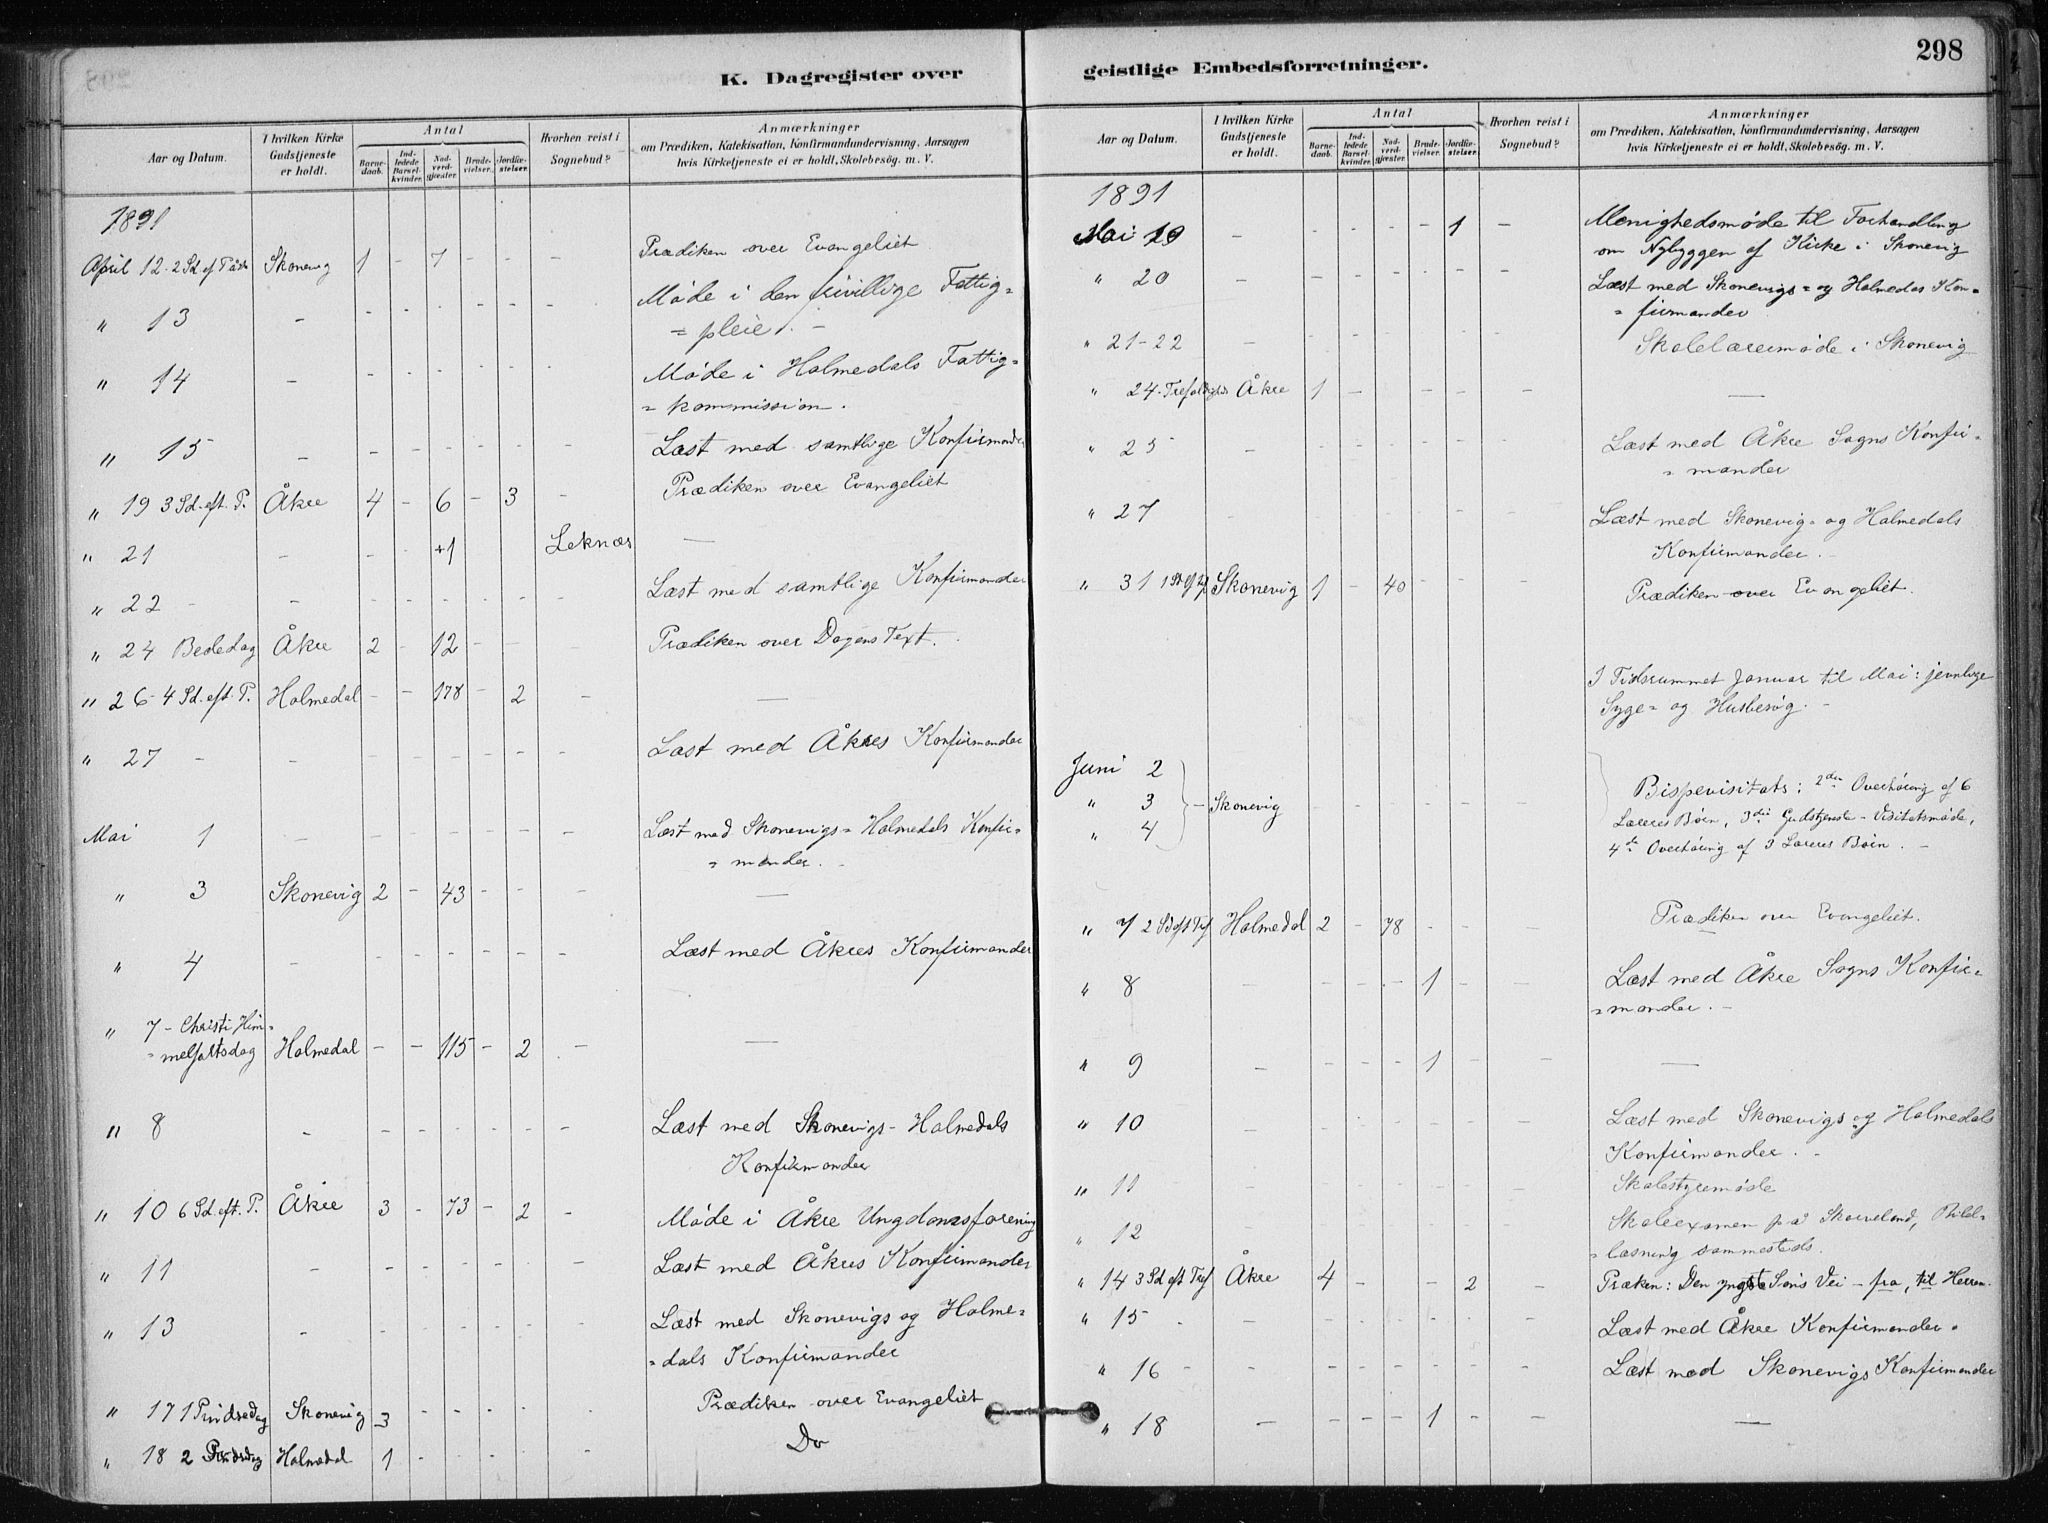 298
K. Dagregister over geistlige Embedsforretninger.
Aar og Datum.
I hvilken Kirke Gudstjeneste er holdt.
Antal
Barnedaab.
Indledede Barselkvinder.
Nadverdgjæster.
Brudevielser.
Jordfæstelser.
Hvorhen reist i Sognebud?
Anmærkninger
om Prædiken, Katekisation, Konfirmandundervisning, Aarsagen
hvis Kirketjeneste ei er holdt, Skolebesøg. m. V.
1891
April 12 - 2 Sd. ef. Påske Skonevig 1 - 7 - - - Prædiken over Evangeliet
" 13 - - - - - - - Møde i den frivillige Fattig=
= pleie. -
" 14 - - - - - - - Møde i Holmedals Fattig=
= kommission.
" 15 - - - - - - - Læst med samtlige Konfirmander
" 19 3 Sd. eft. P. Åkre 4 - 6 - 3 - Prædiken over Evangeliet
" 21 - - - +1 Leknæs -
" 22 - - - - - - - Læst med samtlige Konfirmander
" 24 Bededag Åkre 2 - 12 - - - Prædiken over Dagens Text.
" 26 - 4 Sd. eft. P. Holmedal - - 178 - 2 - -
" 27 - - - - - - - Læst med Åkres Konfirmander
Mai 1 - - - - - - - Læst med Skonevigs = Holmedals Konfir=
= mander. -
" 3 Skonevig 2 - 43 - - - -
" 4 - - - - - - - Læst med Åkres Konfirmander
" 7 - Christi Him=
= melfartsdag Holmedal - - 115 - 2 - -
" 8 - - - - - - - Læst med Skonevigs - Holmedals
Konfirmander
" 10 6 Sd. eft. P. Åkre 3 - 73 - 2 - Møde i Åkre Ungdomsforening
" 11 - - - - - - - Læst med Åkres Konfirmander
" 13 - - - - - - - Læst med Skonevigs og Holme=
= dals Konfirmander
" 17 1 Pindsedag Skonevig 3 - - - - - Prædiken over Evangeliet
" 18 2 Pindsdag Holmedal 1 - - - - - Do
Aar og Datum.
I hvilken Kirke Gudstjeneste er holdt.
Antal
Barnedaab.
Indledede Barselkvinder.
Nadverdgjæster.
Brudevielser.
Jordfæstelser.
Hvorhen reist i Sognebud?
Anmærkninger
om Prædiken, Katekisation, Konfirmandundervisning, Aarsagen
hvis Kirketjeneste ei er holdt, Skolebesøg. m. V.
1891
Mai 19 - - - - - 1 - Menighedsmøde til Forhandling
om Nybyggen af Kirke i Skonevig
" 20 - - - - - - - Læst med Skonevigs = og Holmedas Kon=
= firmander
" 21-22 - - - - - - - Skolelærermøde i Skonevig
" 24. Trefoldighds Åkre 1 - - - - - -
" 25 - - - - - - - Læst med Åkre Sogns Konfir=
= mander
" 27 - - - - - - - Læst med Skonevig = og Holmedals
Konfirmander. -
" 31 Skonevig 1 - 40 - - - Prædiken over Evangeliet.
I Tidsrummet Januar til Mai: jevnlige
Syge= og Husbesøg. -
Juni 2
" 3 - Skonevig - - - - - - Bispevisitats: 2den Overhøring af 6
Læreres Børn, 3die Gudstjeneste - Visitatsmøde,
" 4 4de Overhøring af 3 Læreres Børn. -
" 7 2 Sd eft Tref Holmedal 2 - 78 - - - Prædiken over Evangeliet.
" 8 - - - - 1 - - Læst med Åkre Sogns Konfir=
= mander. -
" 9 - - - - 1 - - -
" 10 - - - - - - - Læst med Skonevigs og Holmedals
Konfirmander. -
" 11 - - - - - - - Skolestyremøde
" 12 - - - - - - - Skoleexamen på Skarveland, Bibel=
= læsning sammesteds.
" 14 3 Sd eft Tref Åkre 4 - - - 2 - Præken: Den yngste Søns Vei - fra, til Herren.
" 15 - - - - - - - Læst med Åkre Konfirmander.
" 16 - - - - - - - Læst med Skonevigs Konfirmander
" 18 - - - - 1 - - -